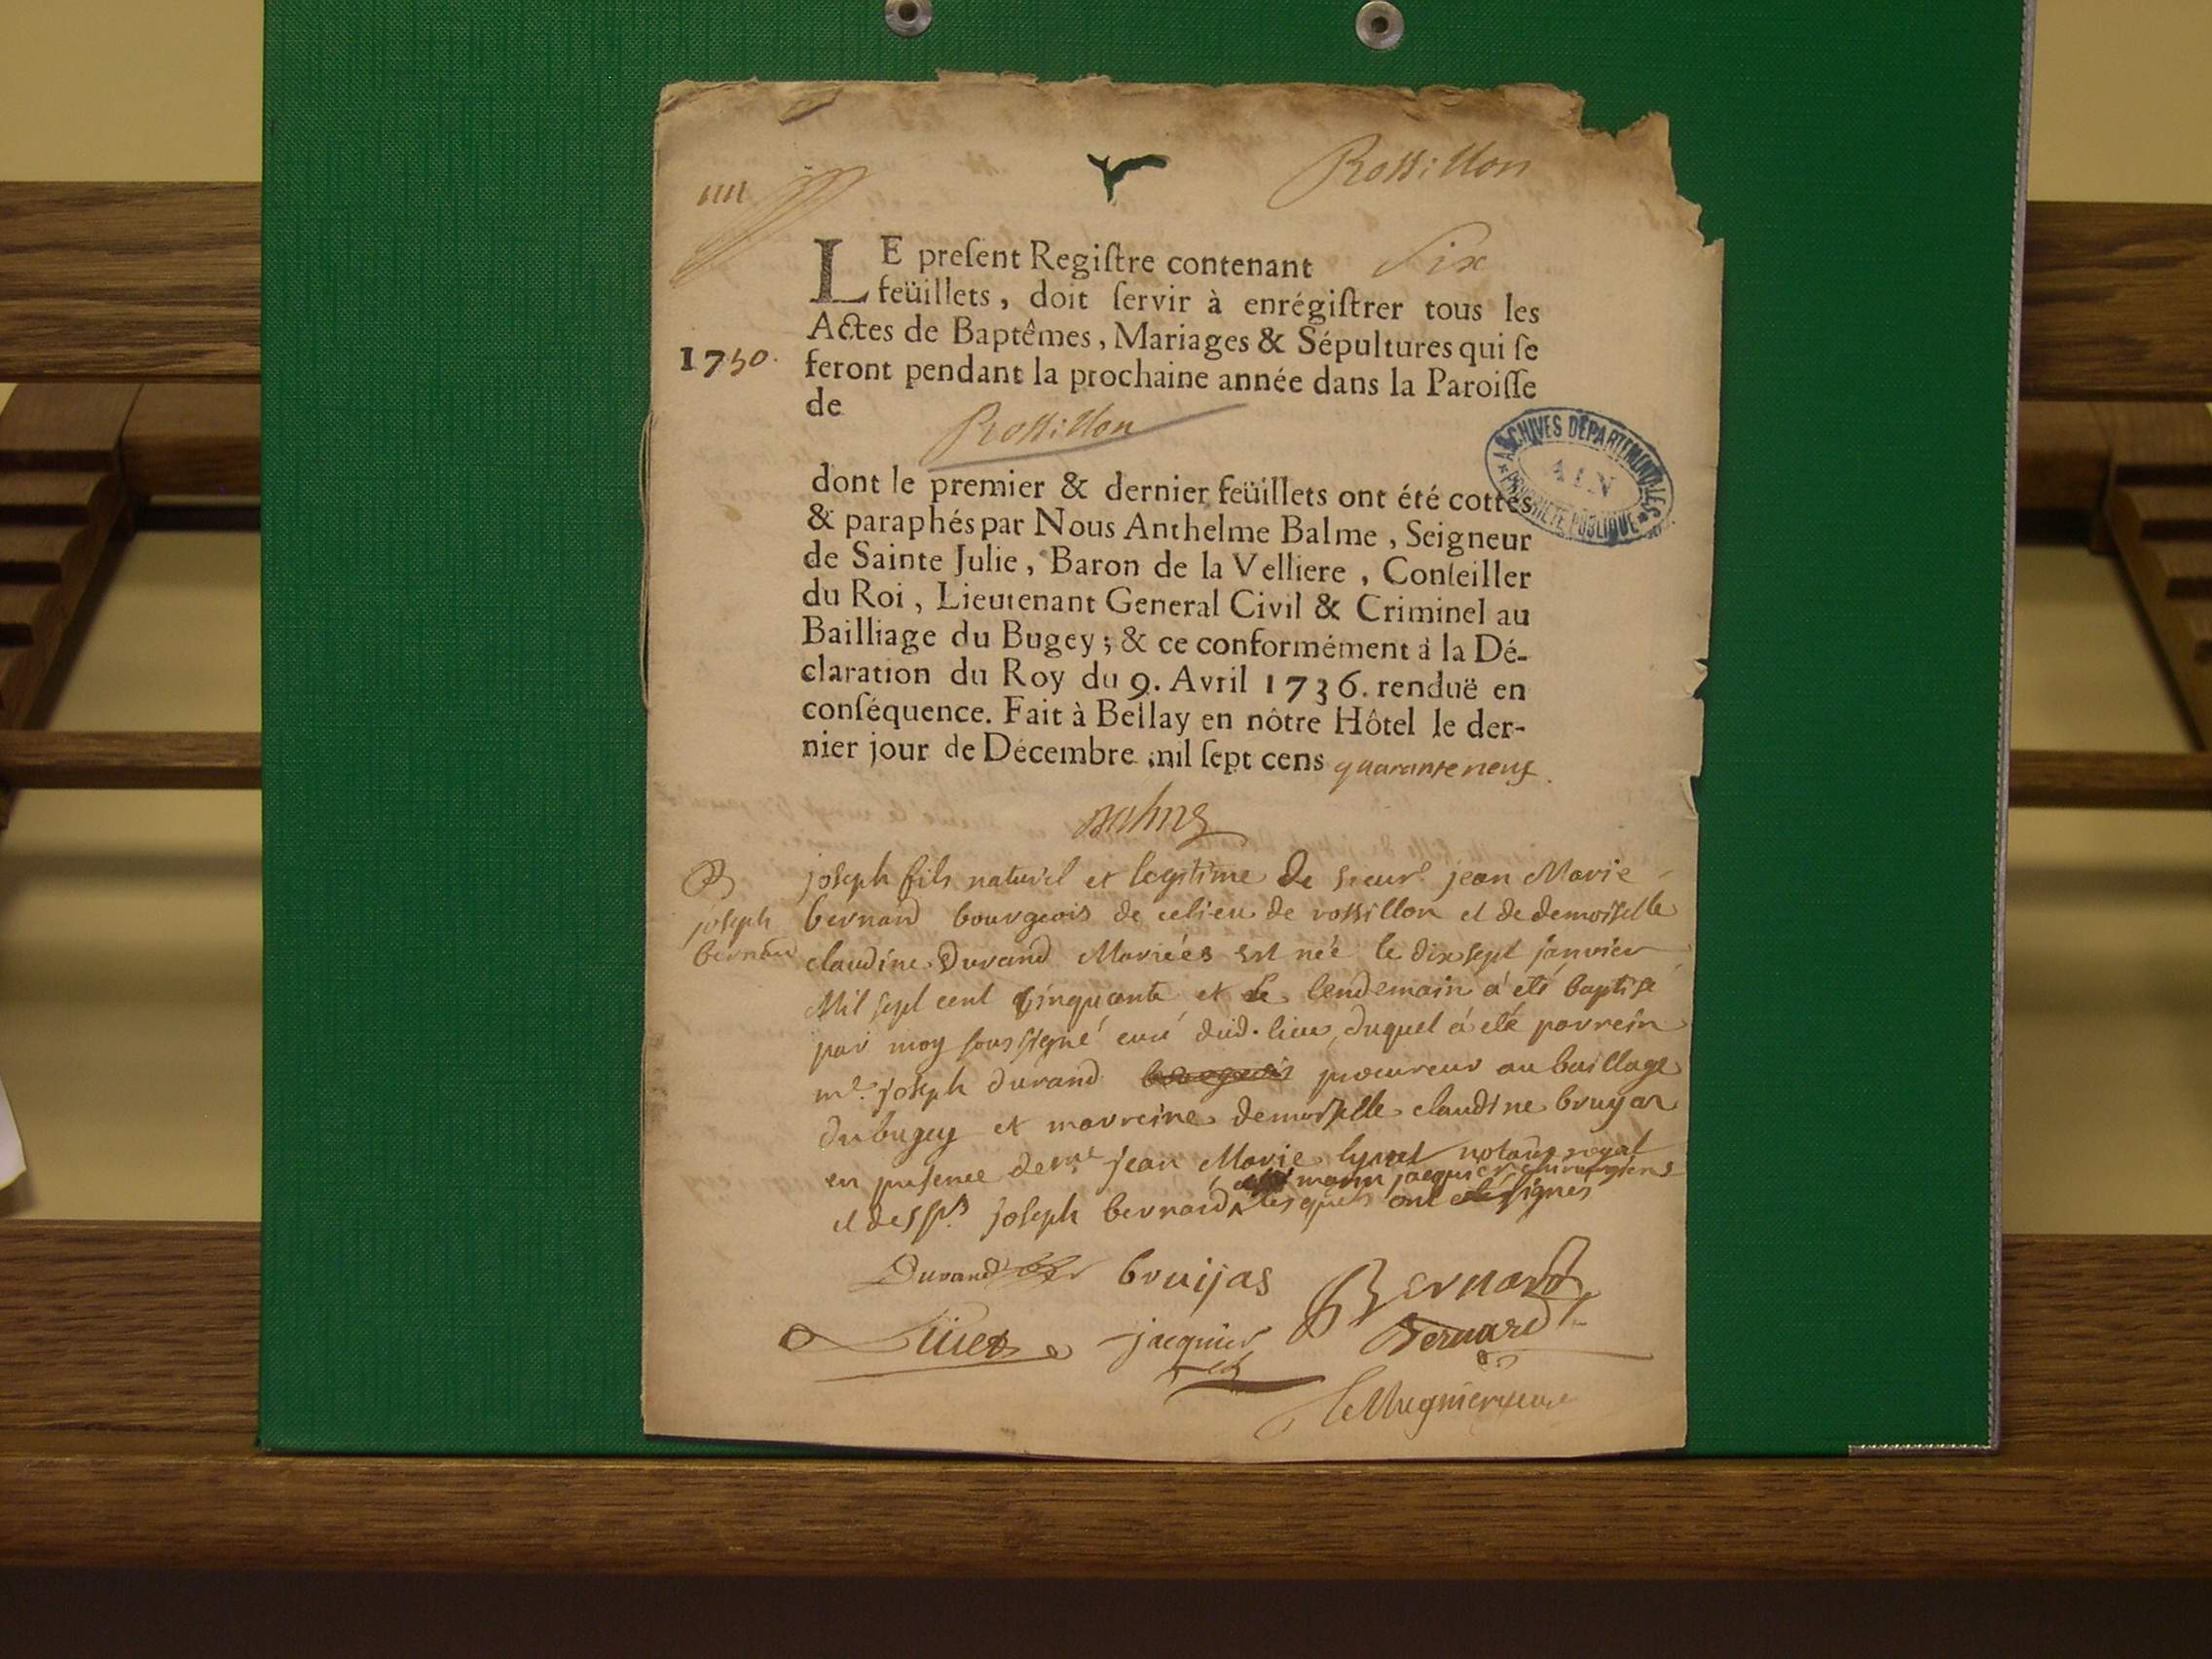 Rossillon
LE preſent Regiſtre contenant Six
feüillets, doit ſervir à enrégiſtrer tous les
Actes de Baptêmes, Mariages & Sépultures qui ſe
1750. feront pendant la prochaine année dans la Paroiſſe
de
Rossillon
ARCHIVES DÉPARTEMENTALES
AIN
PROPRIÉTÉ PUBLIQUE
dont le premier & dernier feüillets ont été cottés
& paraphés par Nous Anthelme Balme, Seigneur
de Sainte Julie, Baron de la Velliere, Conſeiller
du Roi, Lieutenant General Civil & Criminel au
Bailliage du Bugey; & ce conformément à la Dé-
claration du Roy du 9. Avril 1736. renduë en
conſéquence. Fait à Bellay en nôtre Hôtel le der-
nier jour de Décembre mil ſept cens quarante neuf.
Balme
B
joseph
bernard
joseph fils naturel et legitime de sieur jean Marie
bernard bourgeois de celieu de rossillon et de demoiselle
claudine Durand Mariées est né le dix sept janvier
Mil sept cent cinquante et le lendemain a été baptisé
par moy soussigné curé dud. lieu, duquel a été parrein
me. joseph durand bourgeois procureur au baillage
du bugey et marreine demoiselle claudine bruyas
en presence de me jean Marie notaire royal
jacquier chirurgiens
et des srs joseph bernard lesquels ont signés
Durand bruijas Bernard
jacquier Bernard